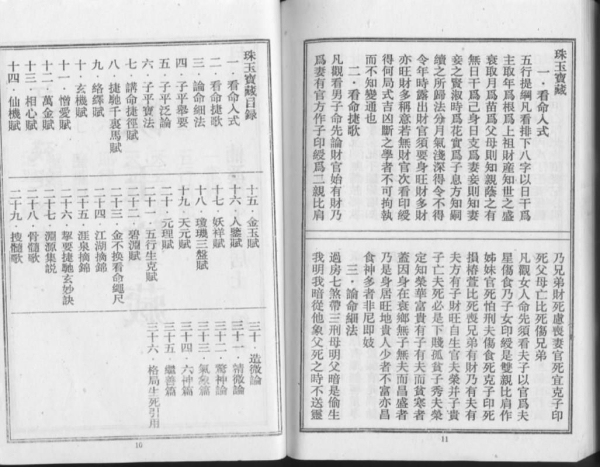 珠玉寶藏目録
一．看命人式
二．看命捷歌
三．論命細法
四．子平舉要
五．子平泛論
六．子平寶法
七．講命捷徑賦
八．捷馳千裏馬賦
九．絡繹賦
十．玄機賦
十一．憎愛賦
十二．萬金賦
十三．相心賦
十四．仙機賦
十五．金玉賦
十六．人鑒賦
十七．妖祥賦
十八．璣三盤賦
十九．天元賦
二十．元理賦
二十一．五行生克賦
二十二．碧淵賦
二十三．金不換看命繩尺
二十四．江湖摘錦
二十五．涯泉摘錦
二十六．掣要捷馳玄妙訣
二十七．淵源集説
二十八．骨髓歌
二十九．搜髓歌
三十．造微論
三十一．清微論
三十二．驚神論
三十三．氣象篇
三十四．六神篇
三十五．繼善篇
三十六．格局生死引用
10
珠玉寶藏
一．看命人式
五行提綱凡看排下八字以日干爲
主取年爲根爲上祖財産知世之盛
衰取月爲苗爲父母則知親蔭之有
無日干爲己身日支爲妻妾則知妻
妾之賢淑時爲花實爲子息方知嗣
續之所歸法分月氣淺深得令不得
令年時露出財官須要身旺財多財
亦旺財多稱意若無財官次看印綬
得何局式吉凶斷之學者不可拘執
而不知變通也
二．看命捷歌
凡觀看男子命先論財官始有財乃
爲妻有官方作子印綬爲二親比肩
乃兄弟財死慮喪妻官死宜克子印
死父母亡比死傷兄弟
凡觀女人命先須看夫子以官爲夫
星傷食乃子女印綬是雙親比肩作
姊妹官死怕刑夫傷食死克子印死
損椿萱比死喪兄弟有財乃有夫有
夫方有子財旺自生官夫榮并子貴
子亡夫死必是下賤孤貧子秀夫榮
定知榮華富貴有子有夫而貧寒者
蓋因身在衰鄉無子無夫而昌盛者
乃是身居旺地貴人少者不富亦昌
食神多者非尼即妓
三．論命細法
過房七煞帶三刑母明父暗是偷生
我明我暗從他象父死之時不送靈
11